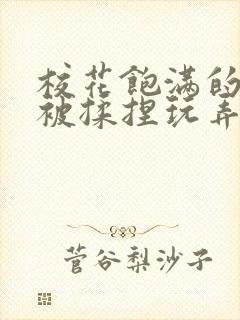 校花飽满的
被揉捏玩弄
菅谷梨沙子